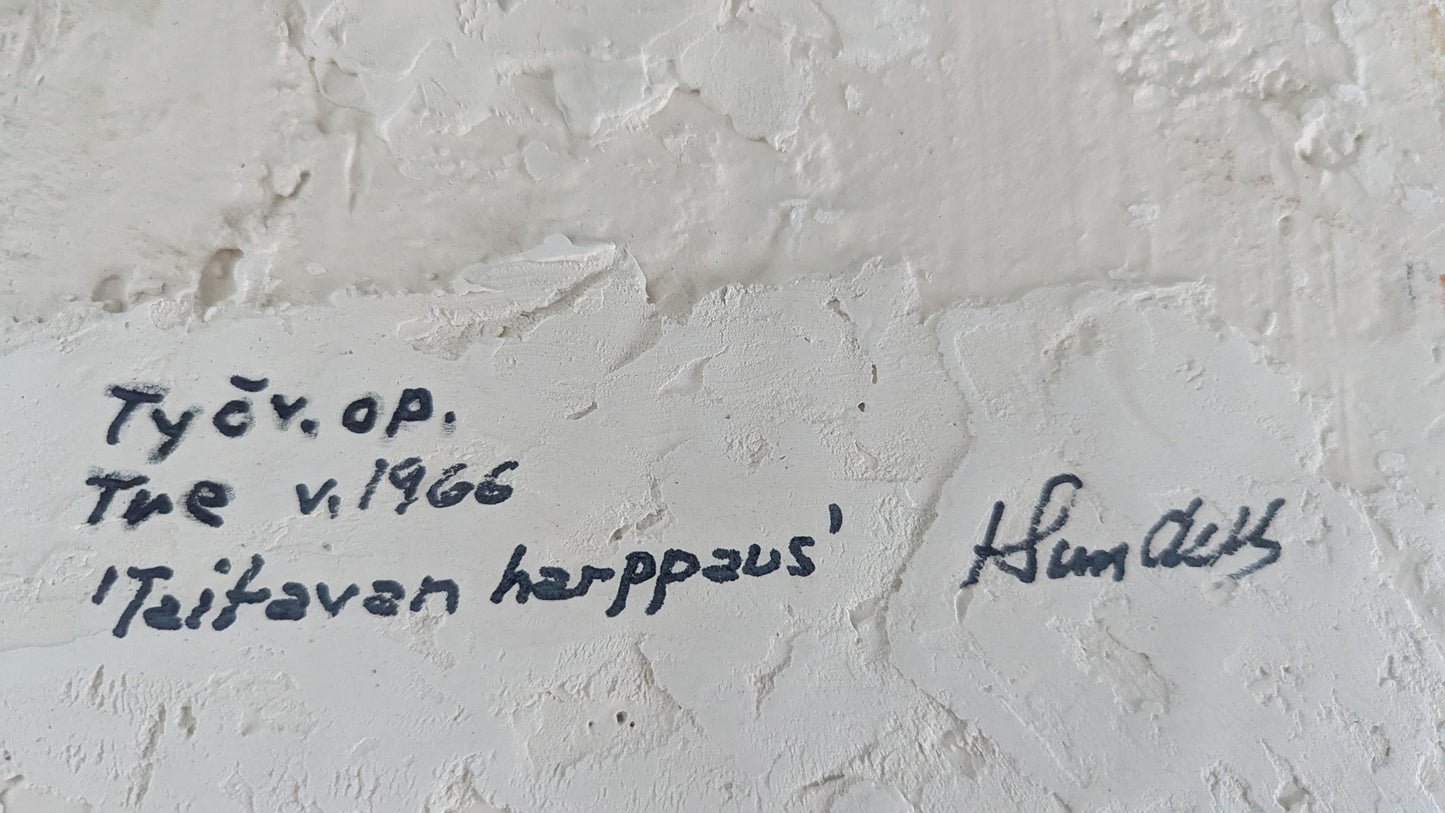 Työv. op.
Tre v. 1966
'Taitavan harppaus'